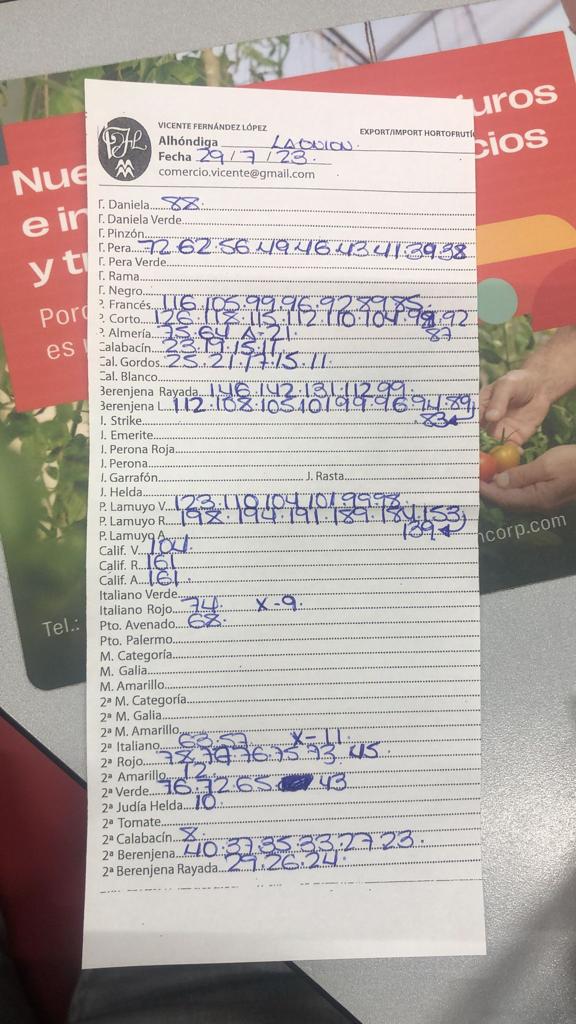 VICENTE FERNÁNDEZ LÓPEZ
EXPORT/IMPORT HORTOFRUTÍC
Alhóndiga LAUNION.
Fecha 29/7/23.
comercio.vicente@gmail.com
T. Daniela 88.
T. Daniela Verde
T. Pinzón
T. Pera 72.62.56.49.46.43.41.39.38
T. Pera Verde
T. Rama
T. Negro
P. Francés 116.105.99.96.92.89.85.
P. Corto 126.118.115.112.110.104.98.92
87
P. Almería 75.64.A.21.
Calabacín 23.19.15.11
Cal. Gordos 25.21.17.15.11.
Cal. Blanco
Berenjena Rayada 146.142.131.112.99.
Berenjena L. 112.108.105.101.99.96.94.89
.83
J. Strike
J. Emerite
J. Perona Roja
J. Perona
J. Garrafón J. Rasta
J. Helda
P. Lamuyo V. 123.110.104.101.99.98.
P. Lamuyo R. 198.194.191.189.184.153
139
P. Lamuyo A.
Calif. V. 104
Calif. R. 161
Calif. A. 161.
Italiano Verde
Italiano Rojo 74. X-9.
Pto. Avenado 68.
Pto. Palermo
M. Categoría
M. Galia
M. Amarillo
2ª M. Categoría
2ª M. Galia
2ª M. Amarillo
2ª Italiano 63.57 X-11.
2ª Rojo 78.79.76.75.73. 45
2ª Amarillo 12.
2ª Verde 76.72.65. 43
2ª Judía Helda 10.
2ª Tomate
2ª Calabacín 8.
2ª Berenjena 40.37.35.33.27.23.
2ª Berenjena Rayada 29.26.24.
Nue
e in
y t
Porq
es
Tel.:
uros
cios
ncorp.com